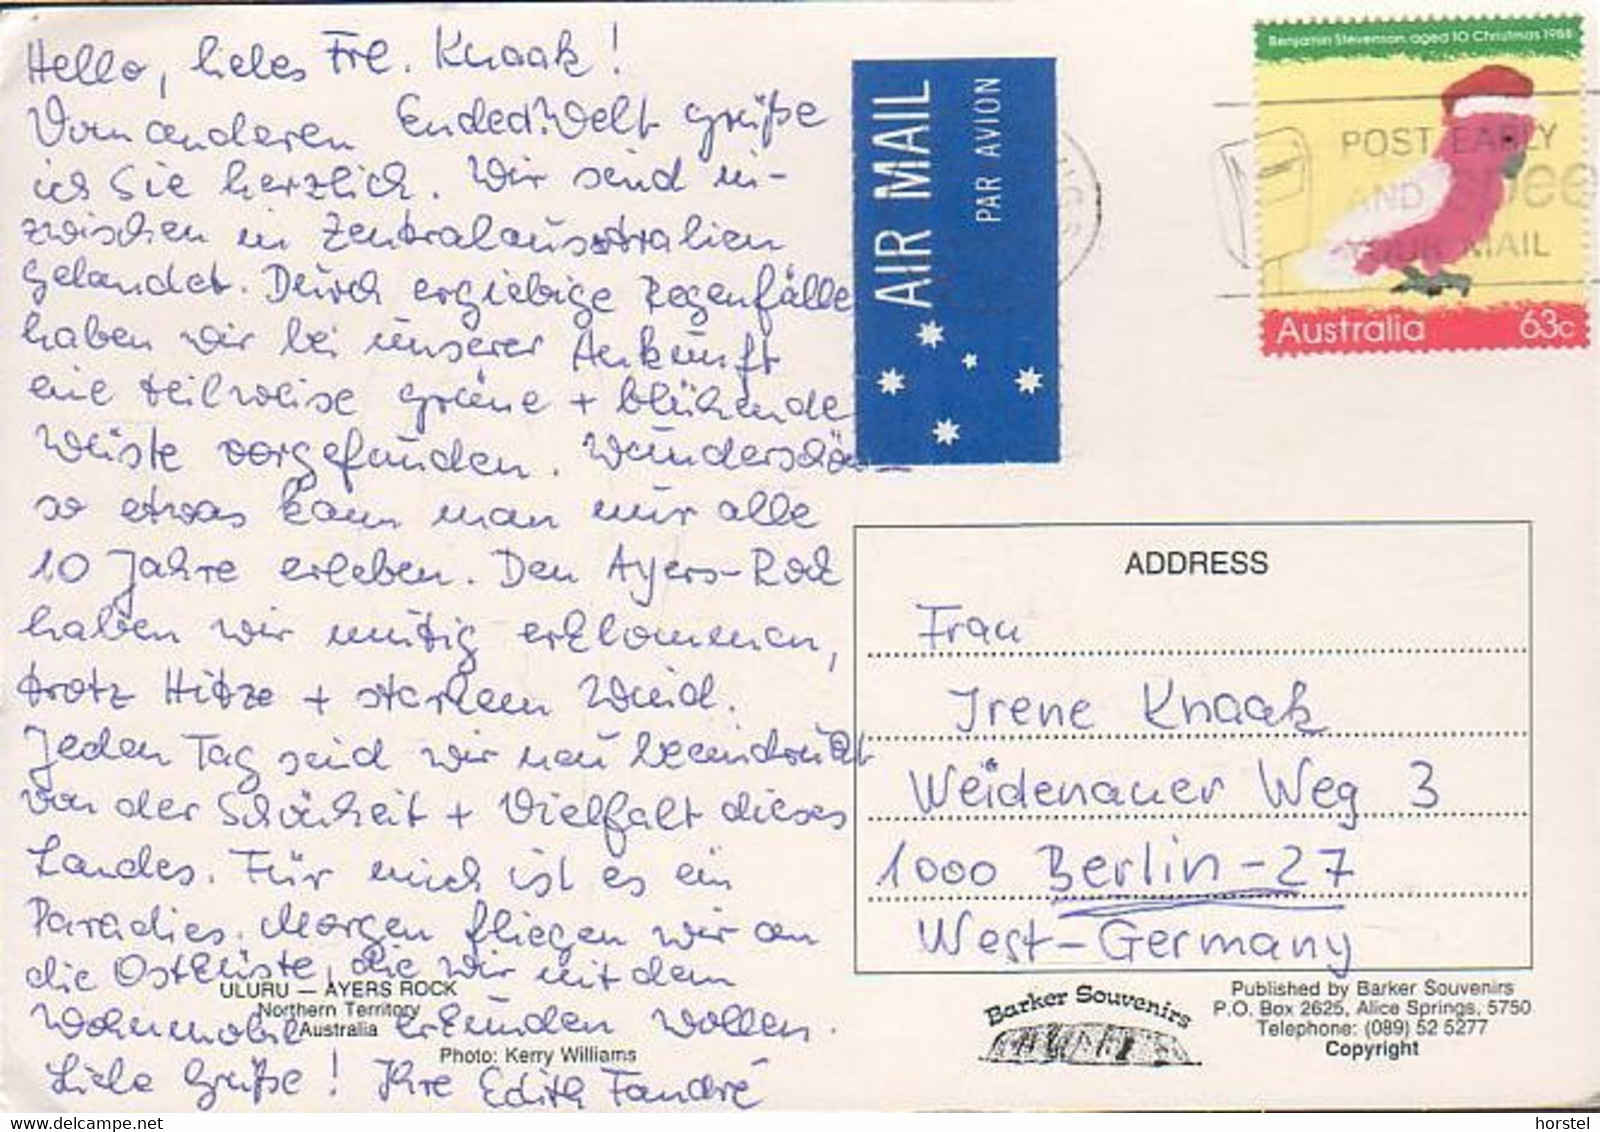 Hello, liebes Frl. Knaak!
Vom anderen Ende d. Welt grüße
ich Sie herzlich. Wir sind in-
zwischen in Zentralaustralien
gelandet. Durch ergiebige Regenfälle
haben wir bei unserer Ankunft
eine teilweise grüne + blühende
Wüste vorgefunden. Wunderschön
so etwas kann man nur alle
10 Jahre erleben. Den Ayers-Rock
haben wir mutig erklommen,
trotz Hitze + starkem Wind.
Jeden Tag sind wir neu beeindruckt
von der Schönheit + Vielfalt dieses
Landes. Für mich ist es ein
Paradies. Morgen fliegen wir an
die Ostküste, die wir mit dem
Wohnmobil erkunden wollen.
Liebe Grüße! Ihre Edith Fandré
ULURU — AYERS ROCK
Northern Territory
Australia
Photo: Kerry Williams
AIR MAIL
PAR AVION
Benjamin Stevenson, aged 10 Christmas 1988
POST EARLY
AND
YOUR MAIL
Australia 63c
ADDRESS
Frau
Irene Knaak
Weidenauer Weg 3
1000 Berlin-27
West-Germany
Barker Souvenirs
Published by Barker Souvenirs
P.O. Box 2625, Alice Springs, 5750
Telephone: (089) 52 5277
Copyright
horstel